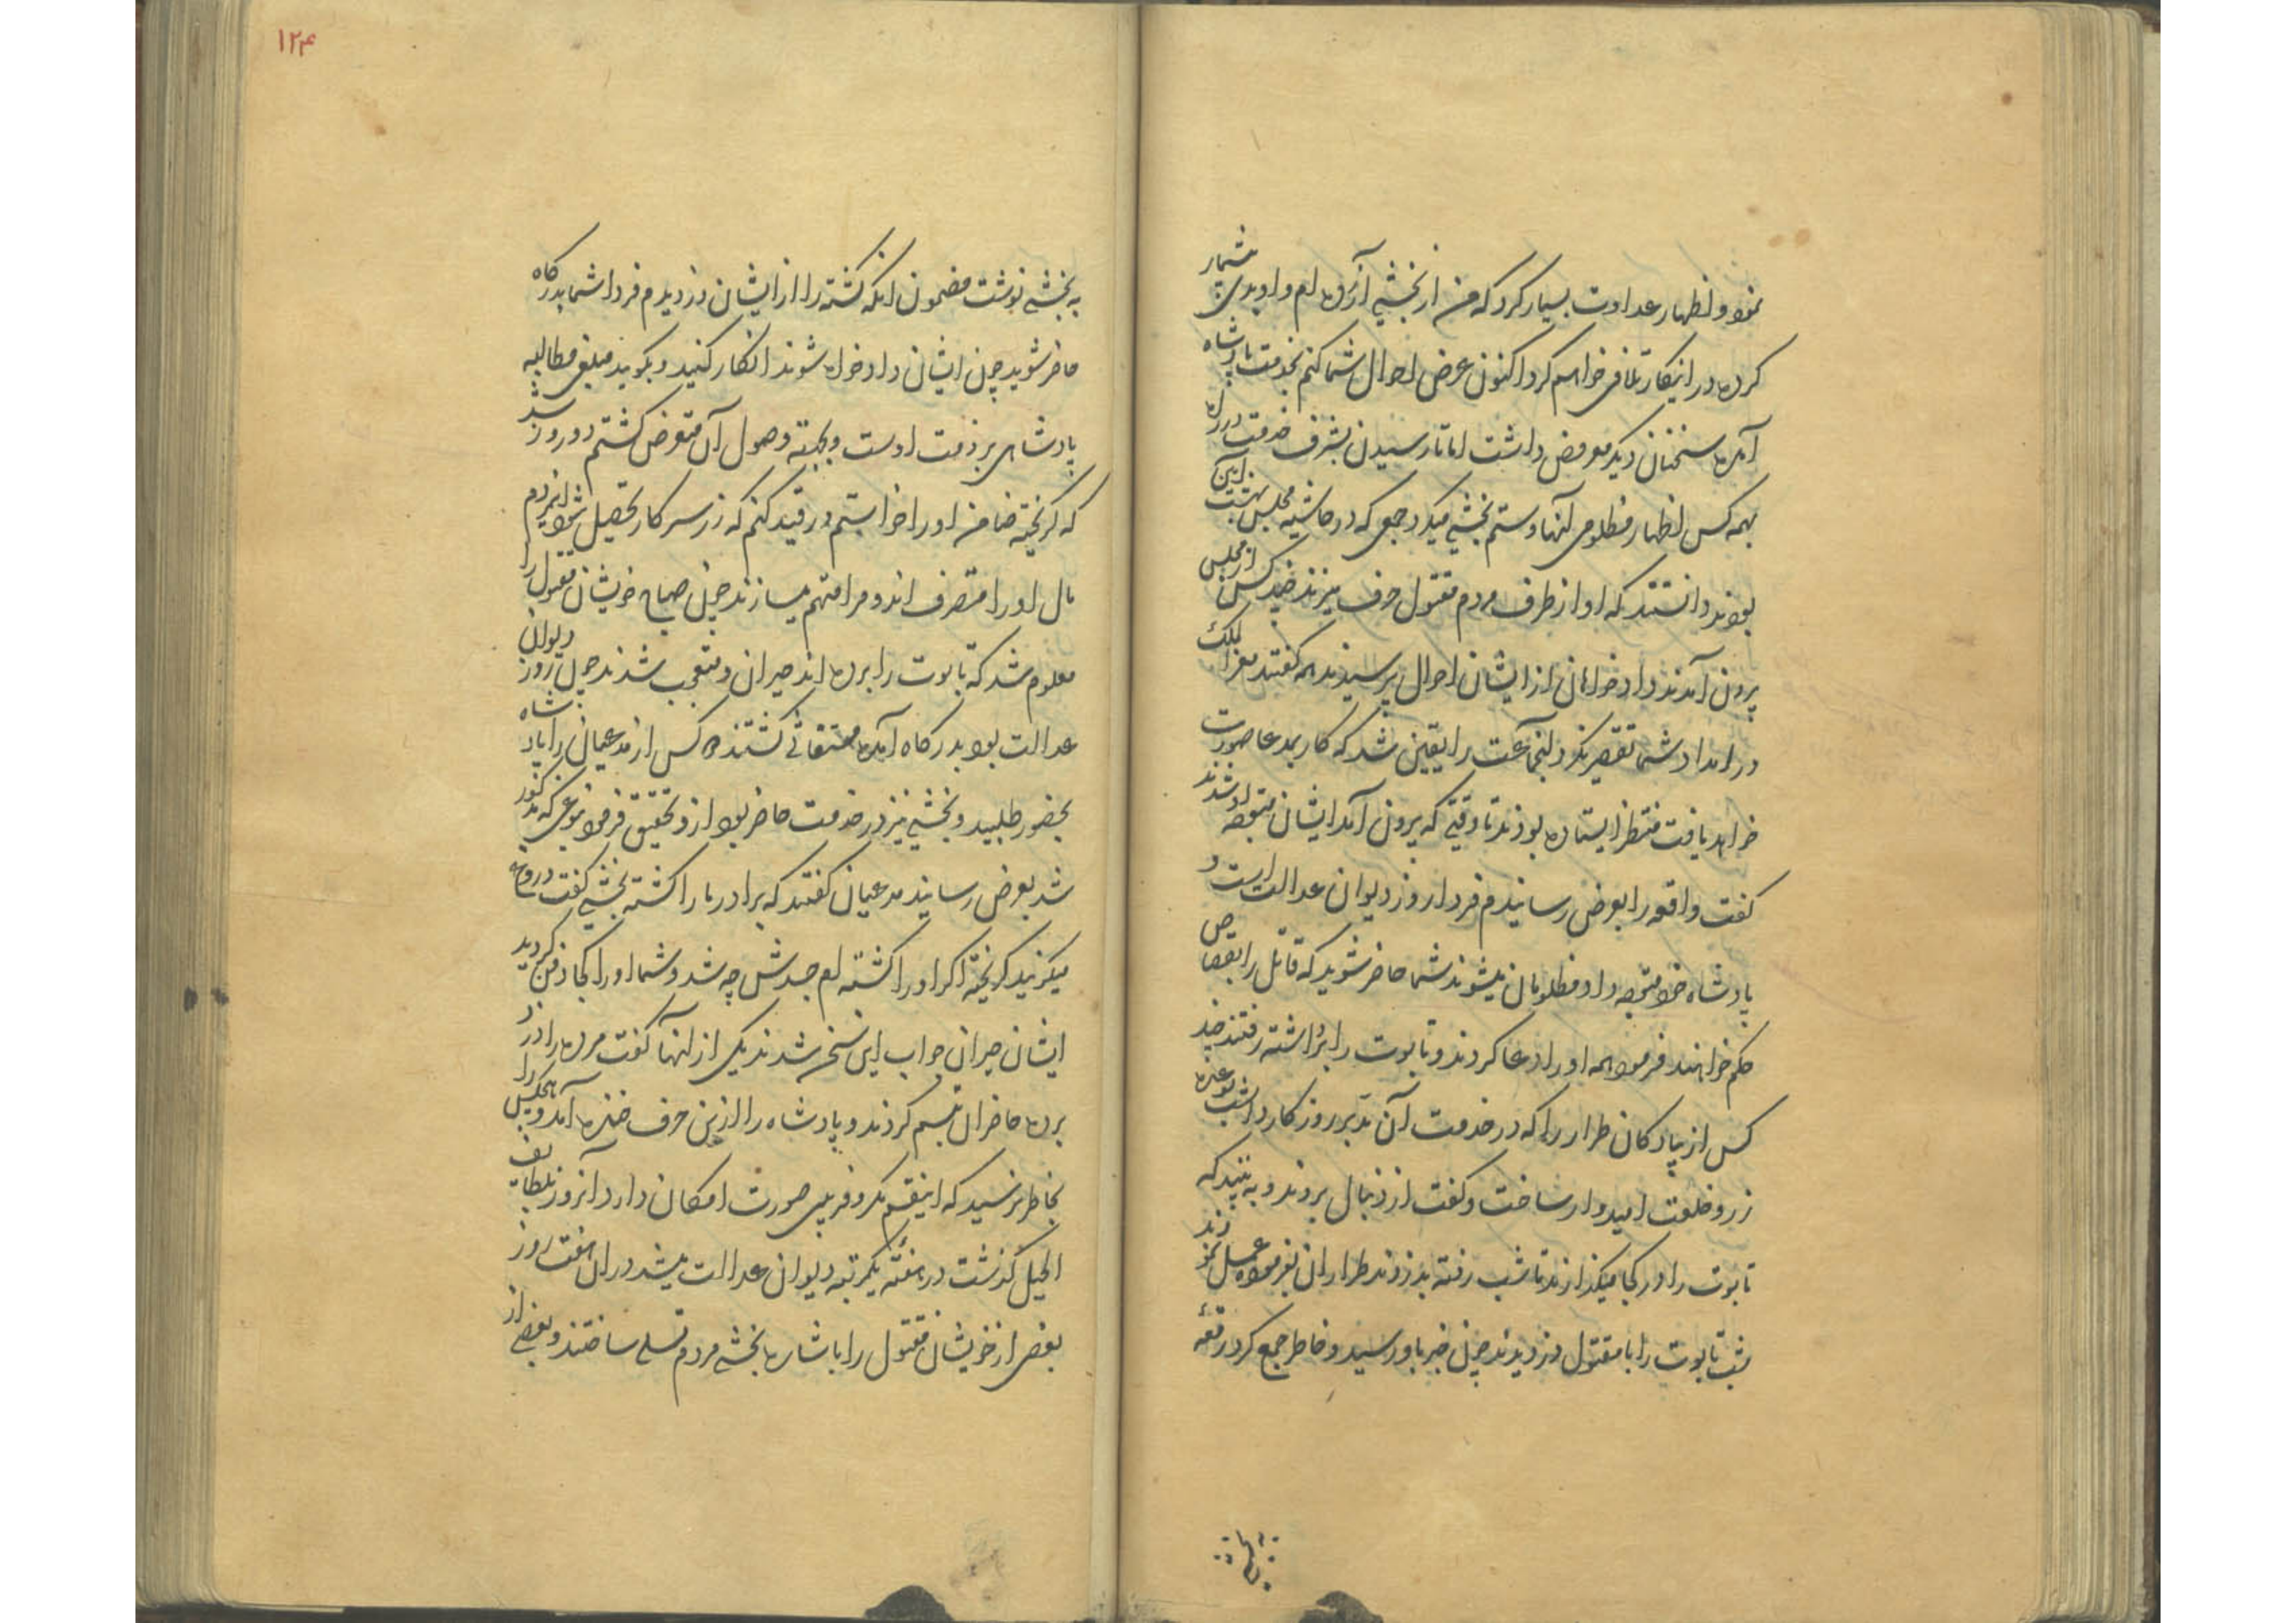 نمود و اظهار عداوت بسیار کرد که من از بخشی آزرده ام و او بدی بیشمار
کرده در اینکار تلافی خواهم کرد اکنون عرض احوال شما کنم بخدمت پادشاه
آمده سخنان دیگر معروض داشت اما تا رسیدن بشرف خدمت در راه
بهمه کس اظهار مظلومی آنها و ستم بخشی میکرد جمعی که در حاشیه مجلس بهشت آیین
بودند دانستند که او از طرف مردم مقتول حرف میزند چند کس از مجلس
بیرون آمدند دادخواهان از ایشان احوال پرسیدند همه گفتند معزالملک
در امداد شما تقصیر نکرد اینجماعت را یقین شد که کار بمدعا صورت
خواهد یافت منتظر ایستاده بودند تا وقتی که بیرون آمد ایشان متوجه او شدند
گفت واقعه را بعرض رسانیدم فردا روز دیوان عدالت است و
پادشاه خود متوجه داد مظلومان میشوند شما حاضر شوید که قاتل را بقصاص
حکم خواهند فرمود همه او را دعا کردند و تابوت را برداشته رفتند چند
کس از پیادگان طرار را که در خدمت آن مدبر روزگار داشت بوعده
زر و خلعت امیدوار ساخت و گفت از دنبال بروند و به بینید که
تابوت را در کجا میگذارند تا شب رفته بدزدند طراران بفرموده عمل نمودند
شب تابوت را با مقتول دزدیدند چون خبر باو رسید و خاطر جمع کرد رقعه
۱۲۴
به بخشی نوشت مضمون آنکه کشته را از ایشان دزدیدم فردا شما بدرگاه
حاضر شوید چون ایشان دادخواه شوند انکار کنید و بگوید مبلغی مطالبه
پادشاهی بر ذمت اوست و بجهته وصول آن متعرض گشتم دو روز شد
که گریخته ضامن او را خواستم در قید کنم که زر سرکار تحصیل شود این مردم
مال او را متصرف اند و مرا متهم میسازند چون صباح خویشان مقتول را
معلوم شد که تابوت را برده اند حیران و متعجب شدند چون روز دیوان
عدالت بود بدرگاه آمده مستغاثی گشتند کس از مدعیان را پادشاه
بحضور طلبید و بخشی نیز در خدمت حاضر بود ازو تحقیق فرمود بنوعی که مذکور
شد بعرض رسانید مدعیان گفتند که برادر ما را کشته بخشی گفت دروغ
میگویید گریخته اگر او را کشته ام جسدش چه شد و شما او را کجا دفن کردید
ایشان حیران جواب این سخن شدند یکی از آنها گفت مرده را دزد
برده حاضران تبسم کردند و پادشاه را ازین حرف خنده آمد و هیچکس را
بخاطر نرسید که اینقسم مکر و فریبی صورت امکان دارد آنروز بلطایف
الحیل گذشت در هفته یکمرتبه دیوان عدالت میشد در آن هفت روز
بعضی از خویشان مقتول را باشاره بخشی مردم تسلی ساختند و بعضی از